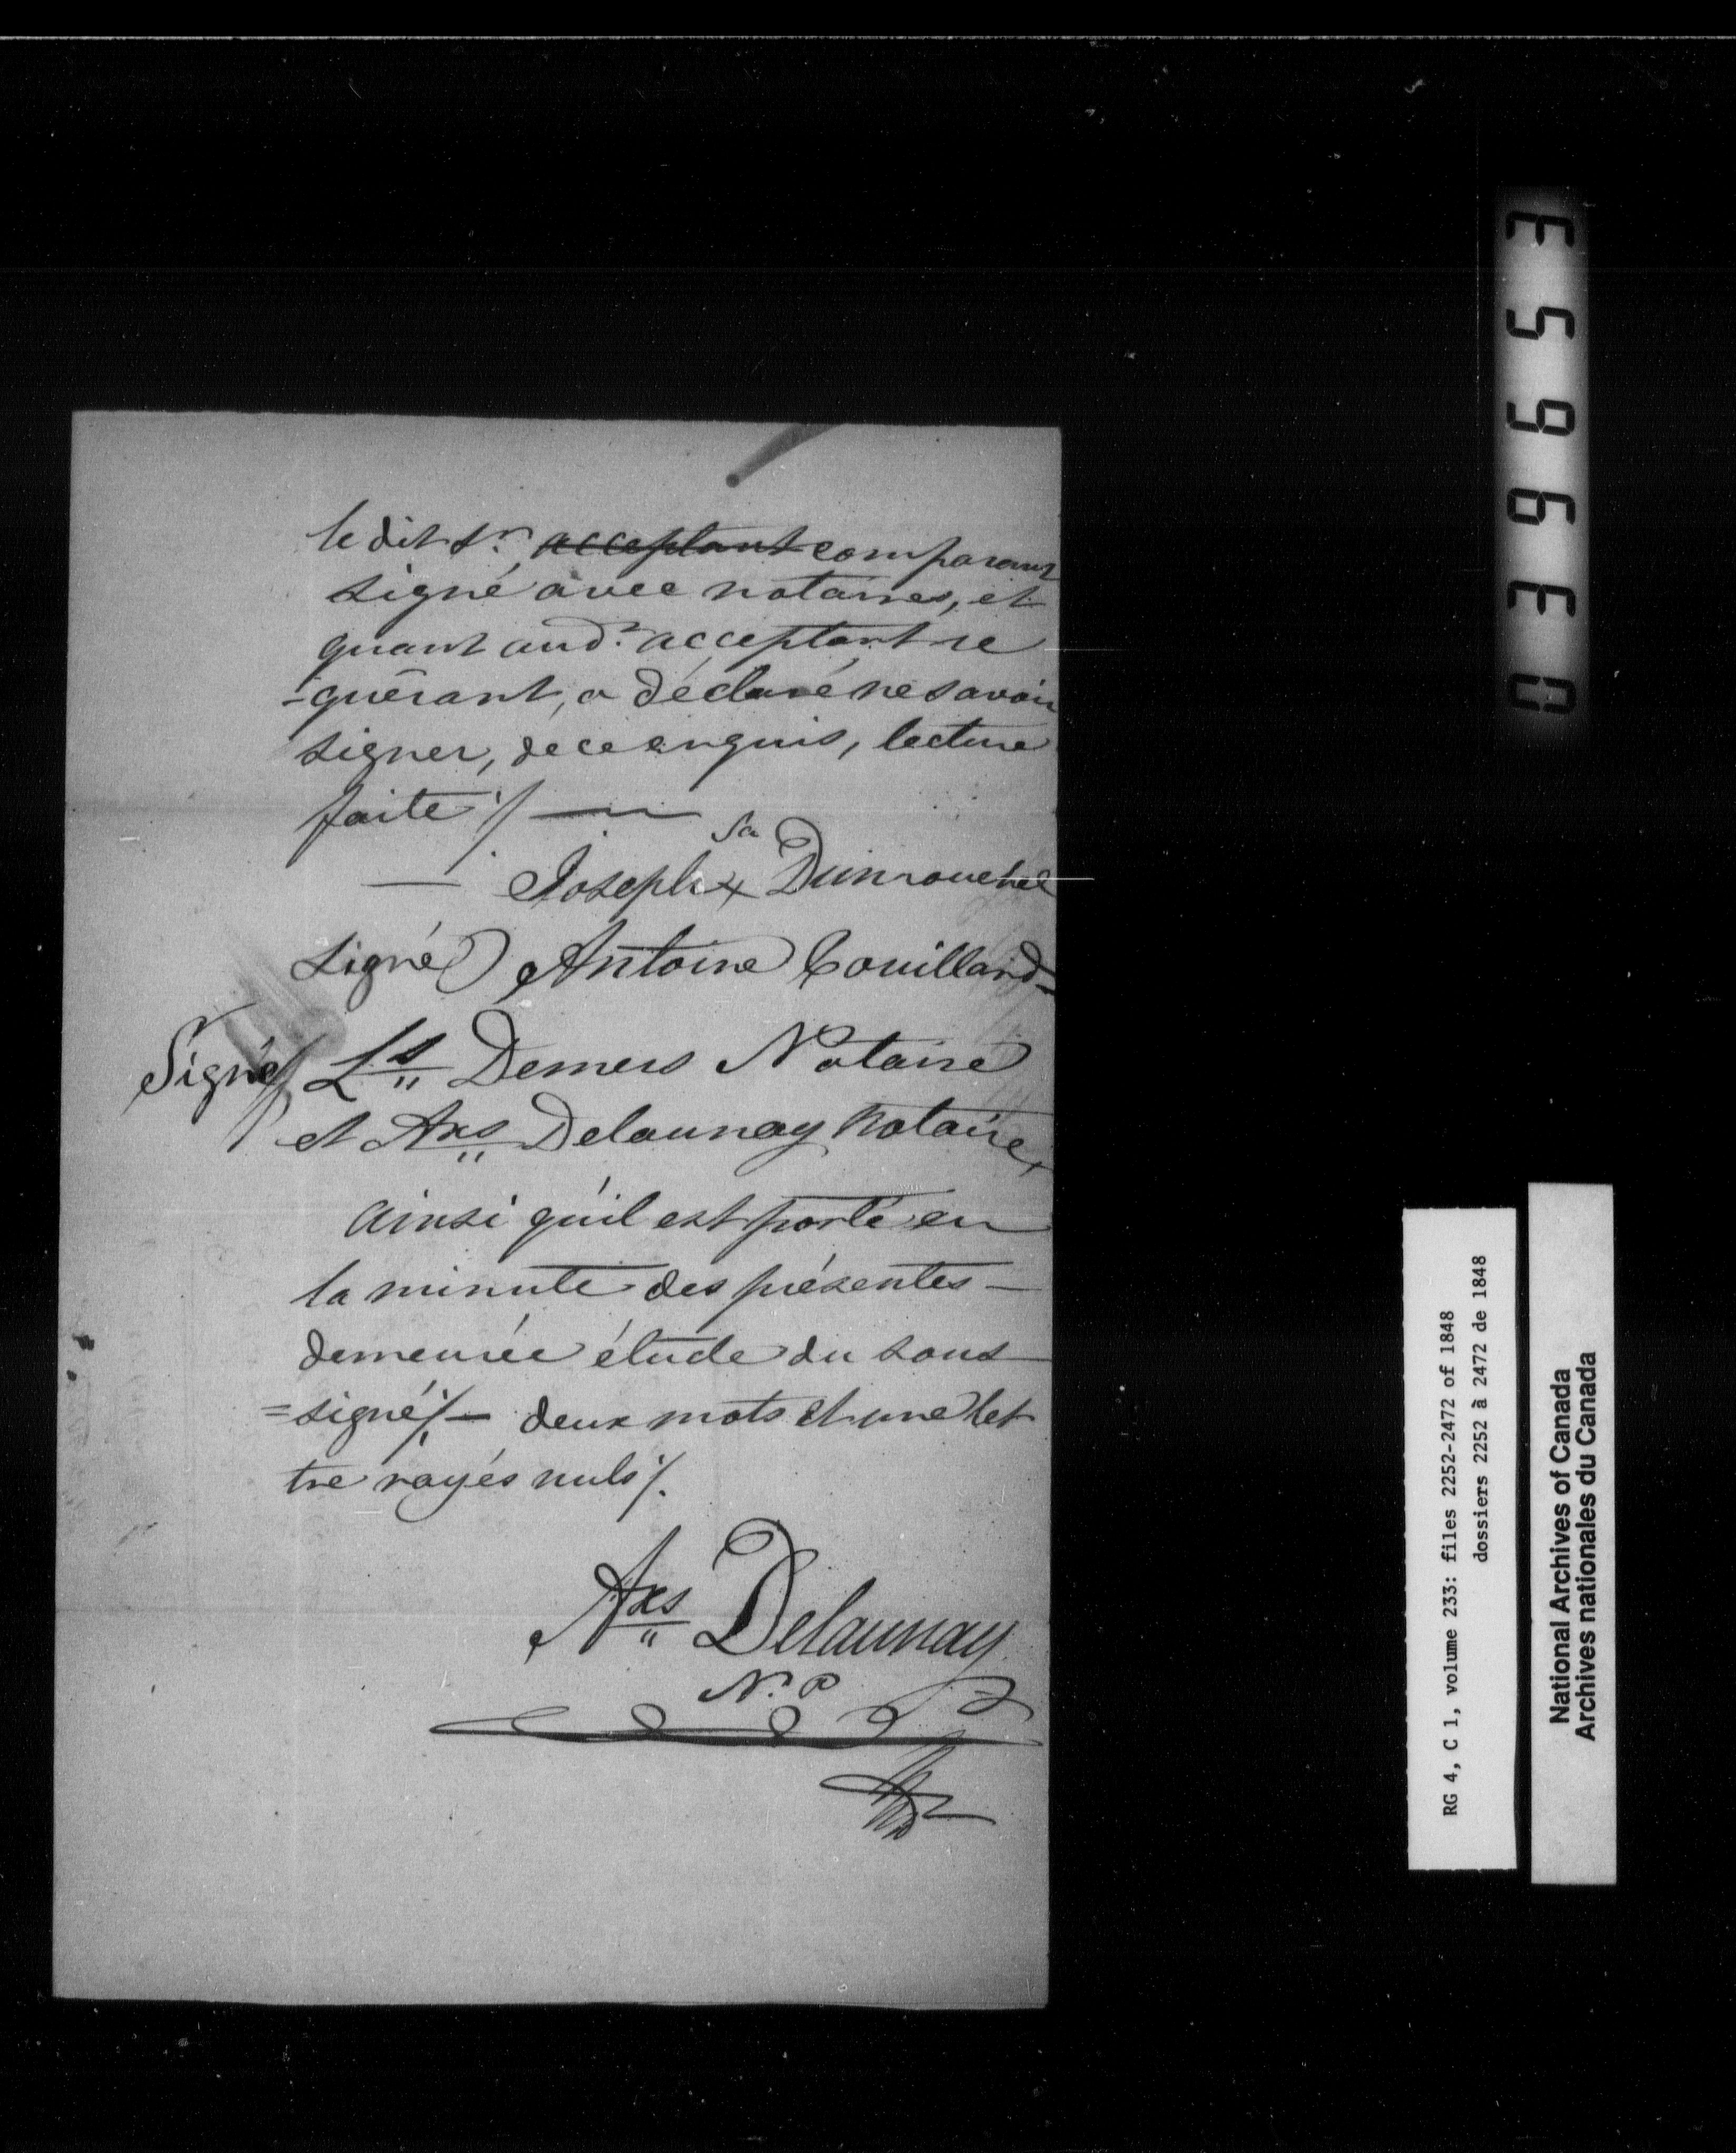 le dit Sr. acceptant comparant
signé avec notaires, et
quant aud.t acceptant re
-quérant, a déclaré ne savoir
signer, de ce enquis, lecture
faite ./. —
— Joseph sa x Dumouchel
signé) Antoine Couillard -
Signé) Ls Demers Notaire
et Axs Delaunay Notaire,
Ainsi qu'il est porté en
la minute des présentes -
demeurée étude du sous
=signé ./. — deux mots et une let
tre rayés nuls ./.
Axs Delaunay
N. P
039653
RG 4, C 1, volume 233: files 2252-2472 of 1848
dossiers 2252 à 2472 de 1848
National Archives of Canada
Archives nationales du Canada